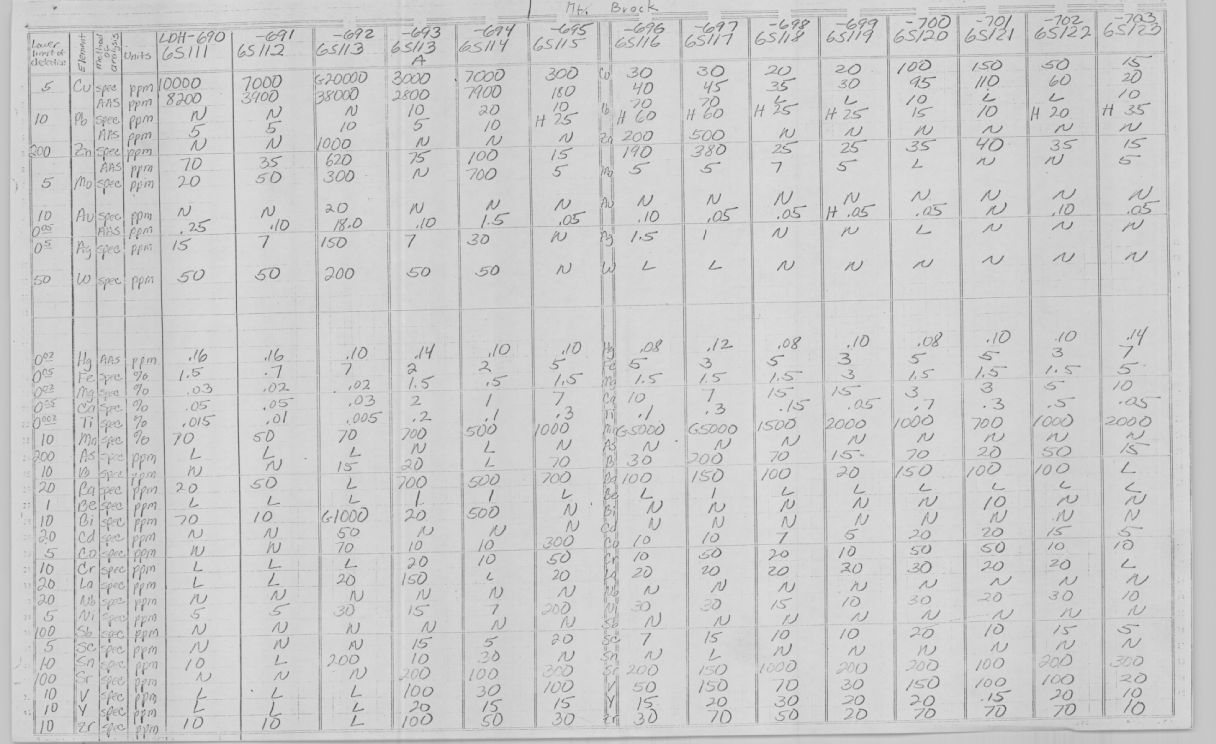 Mt. Brock
Lower limit of detection Element Method of analysis Units LDH-690 65111 -691 65112 -692 65113 -693 65113 A -694 65114 -695 65115 -696 65116 -697 65117 -698 65118 -699 65119 -700 65120 -701 65121 -702 65122 -703 65123
5 Cu spec ppm 10000 7000 G20000 3000 7000 300 Cu 30 30 20 20 100 150 50 15
AAS ppm 8200 3900 38000 2800 7900 180 40 45 35 30 95 110 60 20
10 Pb spec ppm N N N 10 20 10 Pb 70 70 L L 10 L L 10
AAS ppm 5 5 10 5 10 H 25 H 60 H 60 H 25 H 25 15 10 H 20 H 35
200 Zn spec ppm N N 1000 N N N Zn 200 500 N N N N N N
AAS ppm 70 35 620 75 100 15 190 380 25 25 35 40 35 15
5 Mo spec ppm 20 50 300 N 700 5 Mo 5 5 7 5 L N N 5
10 Au spec ppm N N 20 N N N Au N N N N N N N N
0.05 AAS ppm .25 .10 18.0 .10 1.5 .05 .10 .05 .05 H .05 .05 N .10 .05
0.5 Ag spec ppm 15 7 150 7 30 N Ag 1.5 1 N N L N N N
50 W spec ppm 50 50 200 50 50 N W L L N N N N N N
0.02 Hg AAS ppm .16 .16 .10 .14 .10 .10 Hg .08 .12 .08 .10 .08 .10 .10 .14
0.05 Fe spec % 1.5 .7 7 2 2 5 Fe 5 3 5 3 5 5 3 7
0.02 Mg spec % .03 .02 .02 1.5 .5 1.5 Mg 1.5 1.5 1.5 3 1.5 1.5 1.5 5
0.05 Ca spec % .05 .05 .03 2 1 7 Ca 10 7 15 15 3 3 5 10
0.002 Ti spec % .015 .01 .005 .2 .1 .3 Ti .1 .3 .15 .05 .7 .3 .5 .05
10 Mn spec % 70 50 70 700 500 1000 Mn G5000 G5000 1500 2000 1000 700 1000 2000
200 As spec ppm L L L N L N As N N N N N N N N
10 B spec ppm N N 15 20 L 70 B 30 200 70 15 70 20 50 15
20 Ba spec ppm 20 50 L 700 500 700 Ba 100 150 100 20 150 100 100 L
1 Be spec ppm L L L 1 1 L Be L 1 L L L L L L
10 Bi spec ppm 70 10 G1000 20 500 N Bi N N N N N 10 N N
20 Cd spec ppm N N 50 N N N Cd N N N N N N N N
5 Co spec ppm N N 70 10 10 300 Co 10 10 7 5 20 20 15 5
10 Cr spec ppm L L L 20 10 50 Cr 10 50 20 10 50 50 10 10
20 La spec ppm L L 20 150 L 20 La 20 20 20 20 30 20 20 L
20 Nb spec ppm N N N N N N Nb N N N N N N N N
5 Ni spec ppm 5 5 30 15 7 200 Ni 30 30 15 10 30 20 30 10
100 Sb spec ppm N N N N N N Sb N N N N N N N N
5 Sc spec ppm N N N 15 5 20 Sc 7 15 10 10 20 10 15 5
10 Sn spec ppm 10 L 200 10 30 N Sn N L N N N N N N
100 Sr spec ppm N N N 200 100 300 Sr 200 150 1000 200 200 100 200 300
10 V spec ppm L L L 100 30 100 V 50 150 70 30 150 100 100 20
10 Y spec ppm L L L 20 15 15 Y 15 20 30 20 20 15 20 10
10 Zr spec ppm 10 10 L 100 50 30 Zr 30 70 50 20 70 70 70 10